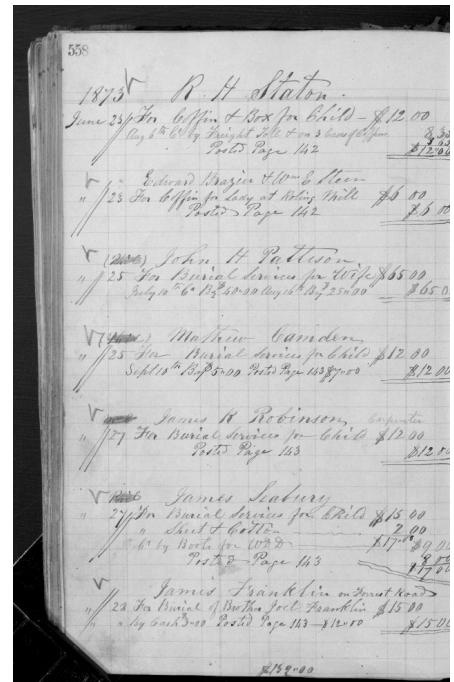 558
1873 R. H. Staton.
June 23 For Coffin & Box for Child - $12 00
Aug 6th Cr by Freight & on 3 8,35
Posted Page 142 $12=00
Edward Brazier & Wm E
" 23 For Coffin for Lady at Roling Mill $6 00
Posted Page 142 $6 00
John H Pattison
" 25 For Burial Services for Wife $65 00
July 10th Cr By $ 40=00 Aug 16th By $ 25=00 $65 00
Mathew Camden
" 25 For Burial Services for Child $12 00
Sept 10th By $ 5=00 Posted Page 143 $7=00 $12 00
James R Robinson, Carpenter
" 27 For Burial Services for Child $12 00
Posted Page 143 $12 00
James Seabury
" 27 For Burial Services for Child $15 00
" Sheet & Cotton 2 00
Cr by Boots for $17=00 $9 00
Posted Page 143 8 00
$17 00
James Franklin on Forrest Road
" 28 For Burial of Brother Joel Franklin $15 00
" " By Cash 3=00 Posted Page 143 - $12=00 $15 00
$139=00